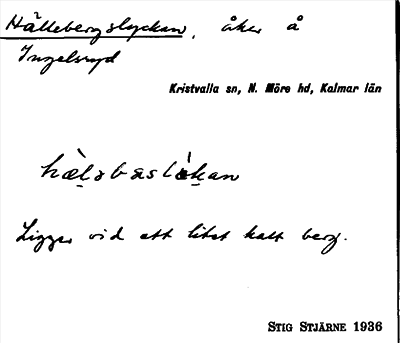 Hällebergslyckan, åker å
Ingelsryd
Kristvalla sn, N. Möre hd, Kalmar län
hæ̀labæslỳkan
Ligger vid ett litet kalt berg.
STIG STJÄRNE 1936